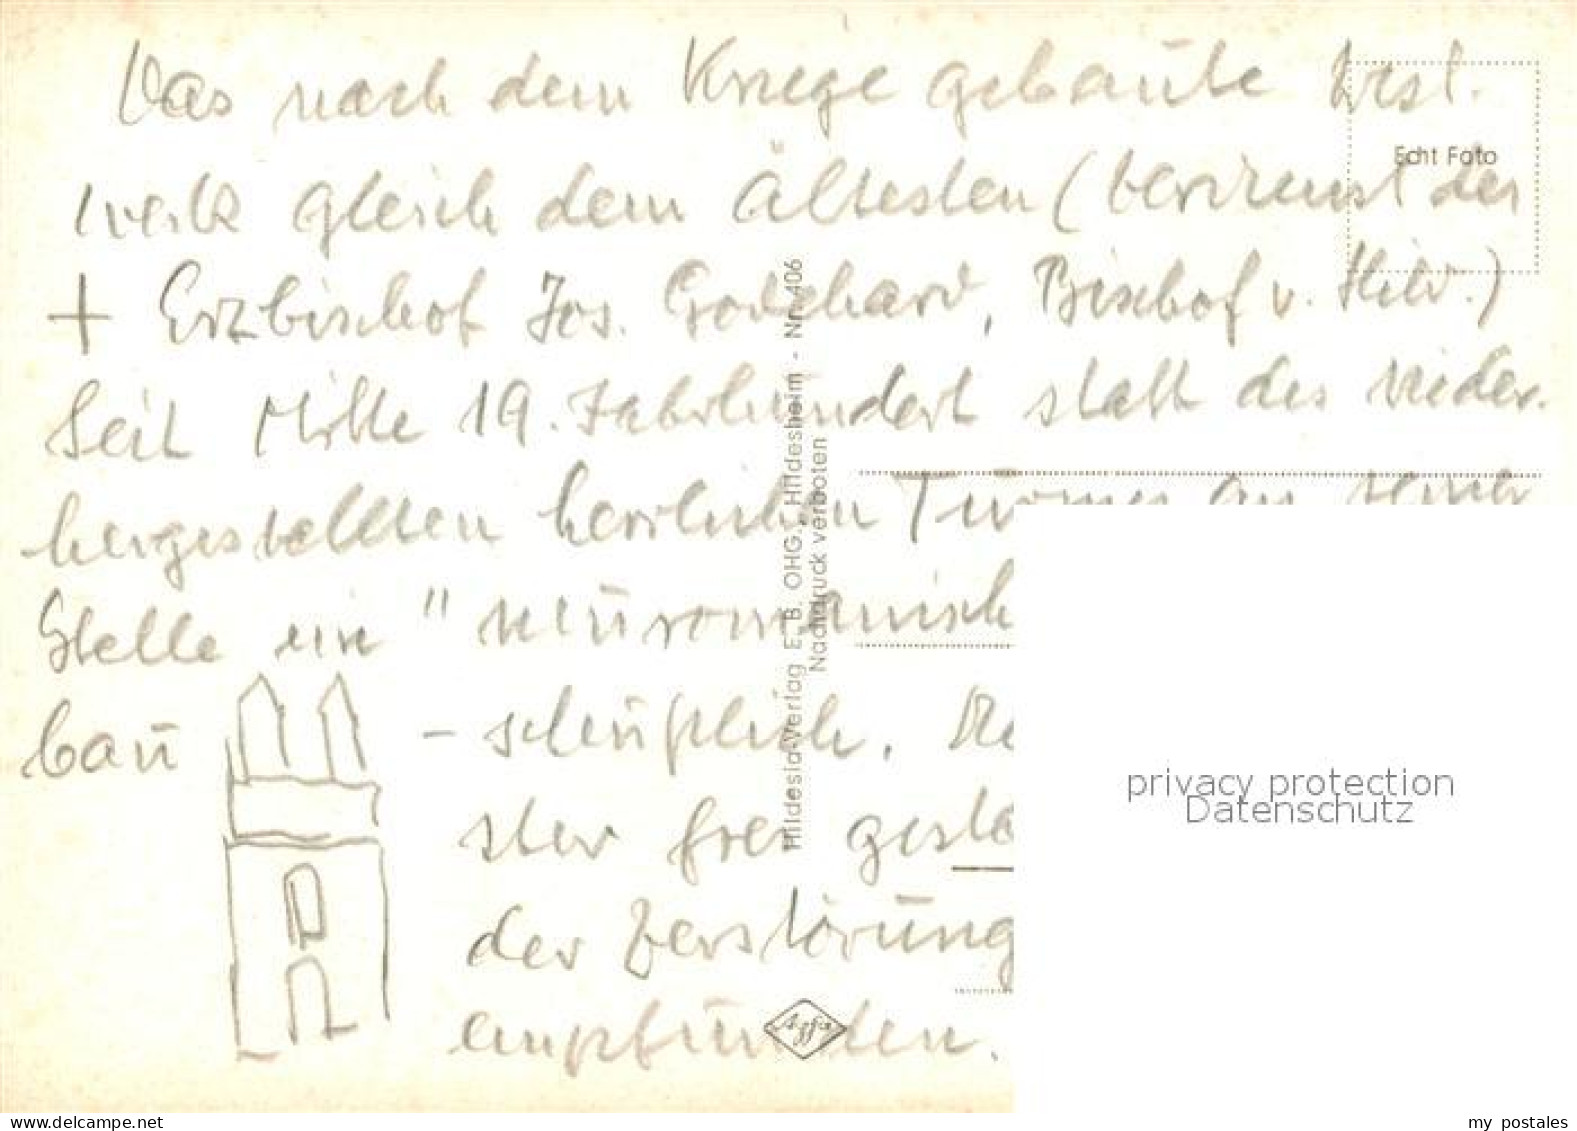 Das nach dem Kriege gebaute West-
werk gleich dem Ältesten (Verdienst des
+ Erzbischof Jos. Godehard, Bischof v. Hild.)
Seit Mitte 19. Jahrhundert statt des wieder-
hergestellten herrlichen Turmes an seiner
Stelle ein "neuromanisch
bau - scheußlich. Me
ster frei gesta
der Zerstörung
empfunden.
Echt Foto
Hildesia-Verlag E. B. OHG., Hildesheim - Nr. 406
Nachdruck verboten
Agfa
privacy protection
Datenschutz
my postales